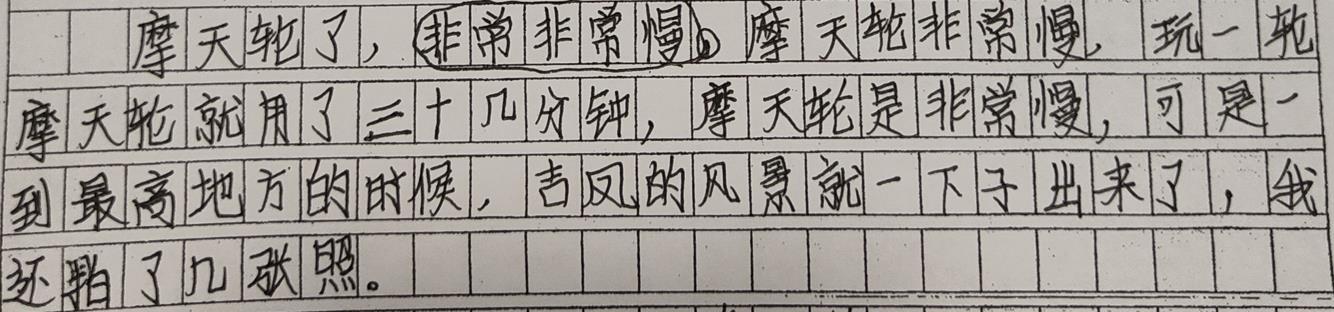 摩天轮了，非常非常慢。摩天轮非常慢，玩一轮
摩天轮就用了三十几分钟，摩天轮是非常慢，可是一
到最高地方的时候，吉凤的风景就一下子出来了，我
还拍了几张照。